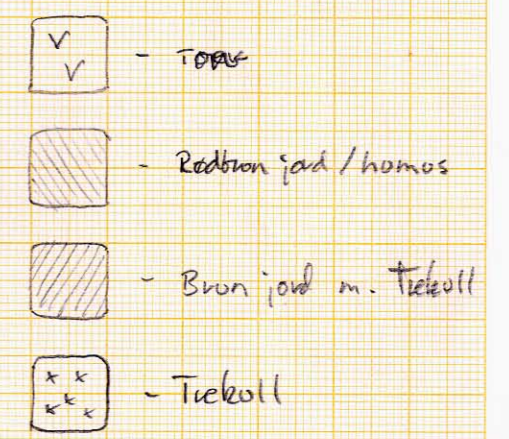 - Torv
- Rødbrun jord / humus
- Brun jord m. trekull
- Trekull